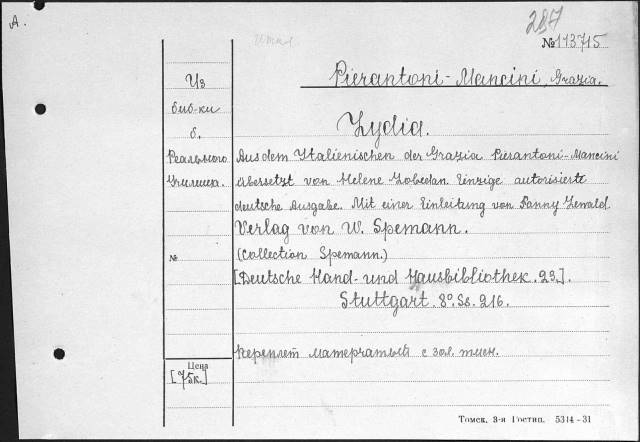 А.
итал
287
№113715
Pierantoni-Mancini, Grazia.
Из
биб-ки
б.
Реального
Училища.
№
Цена
[75к.]
Lydia.
Aus dem Italienischen der Grazia Pierantoni-Mancini
übersetzt von Helene Lobedan. Einzige autorisierte
deutsche Ausgabe. Mit einer Einleitung von Fanny Lewald.
Verlag von W. Spemann.
(Collection Spemann.)
[Deutsche Hand- und Hausbibliothek. 23.].
Stuttgart. 8º. Ss. 216.
Переплет матерчатый с зол. тисн.
Томск. 3-я Гостип. 5314-31